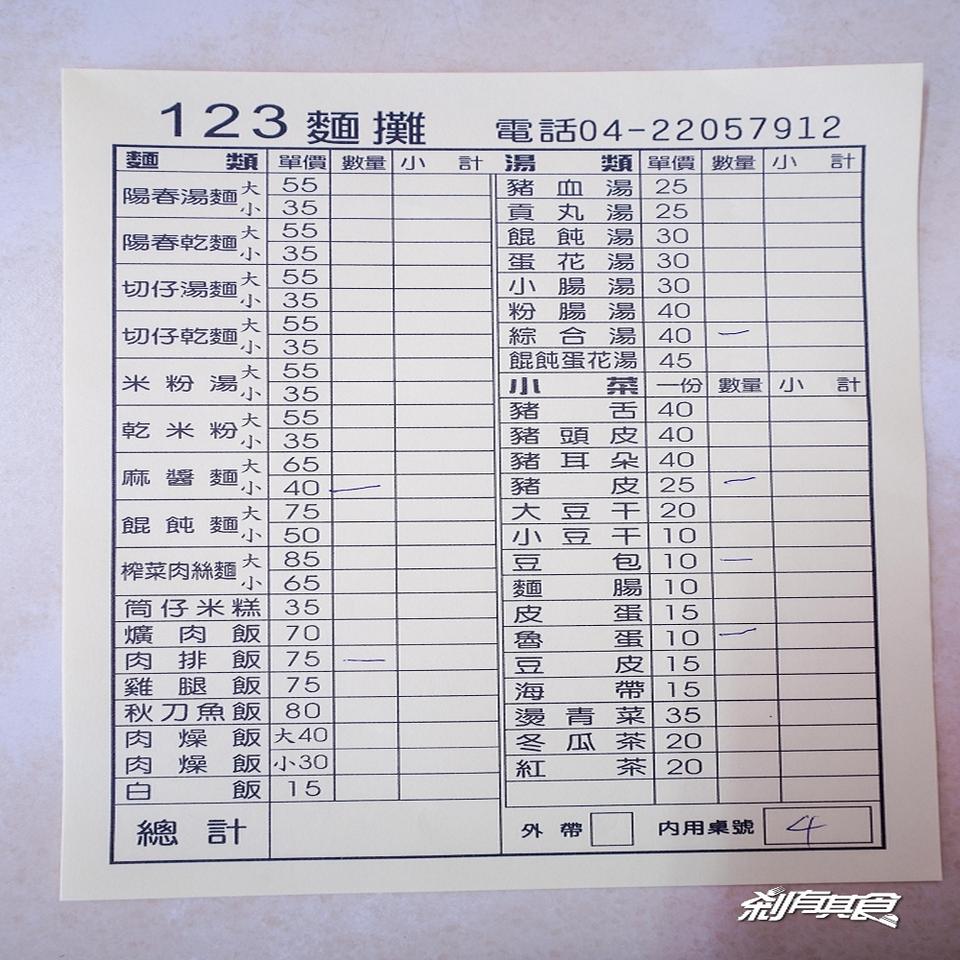 123 麵攤 電話04-22057912
麵類 單價 數量 小計 湯類 單價 數量 小計
陽春湯麵 大 55
小 35
陽春乾麵 大 55
小 35
切仔湯麵 大 55
小 35
切仔乾麵 大 55
小 35
米粉湯 大 55
小 35
乾米粉 大 55
小 35
麻醬麵 大 65
小 40 一
餛飩麵 大 75
小 50
榨菜肉絲麵 大 85
小 65
筒仔米糕 35
爌肉飯 70
肉排飯 75 一
雞腿飯 75
秋刀魚飯 80
肉燥飯 大40
肉燥飯 小30
白飯 15
豬血湯 25
貢丸湯 25
餛飩湯 30
蛋花湯 30
小腸湯 30
粉腸湯 40
綜合湯 40 一
餛飩蛋花湯 45
小菜 一份 數量 小計
豬舌 40
豬頭皮 40
豬耳朵 40
豬皮 25 一
大豆干 20
小豆干 10
豆包 10 一
麵腸 10
皮蛋 15
魯蛋 10 一
豆皮 15
海帶 15
燙青菜 35
冬瓜茶 20
紅茶 20
總計 外帶 內用桌號 4
剎有其食